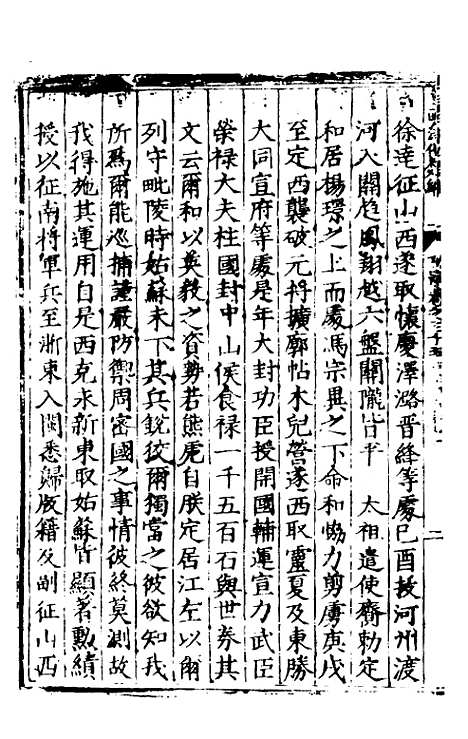 徐達征山西遂取懷慶澤潞晉絳等處己酉拔河州渡
河入關趍鳳翔越六盤關隴皆平　太祖遣使齎勑定
和居楊璟之上而處馮宗異之下命和恊力剪虜庚戌
至定西襲破元将擴廓帖木兒營遂西取靈夏及東勝
大同宣府等處是年大封功臣授開國輔運宣力武臣
榮禄大夫柱國封中山侯食禄一千五百石與世券其
文云爾和以英毅之資勢若熊虎自朕定居江左以爾
列守毗陵時姑蘇未下其兵銳彼爾獨當之彼欲知我
所爲爾能巡捕謹嚴防禦周密國之事情彼終莫測故
我得施其運用自是西克永新東取姑蘇皆顯著勲績
授以征南將軍兵至浙東入閩悉歸版籍及副征山西
二